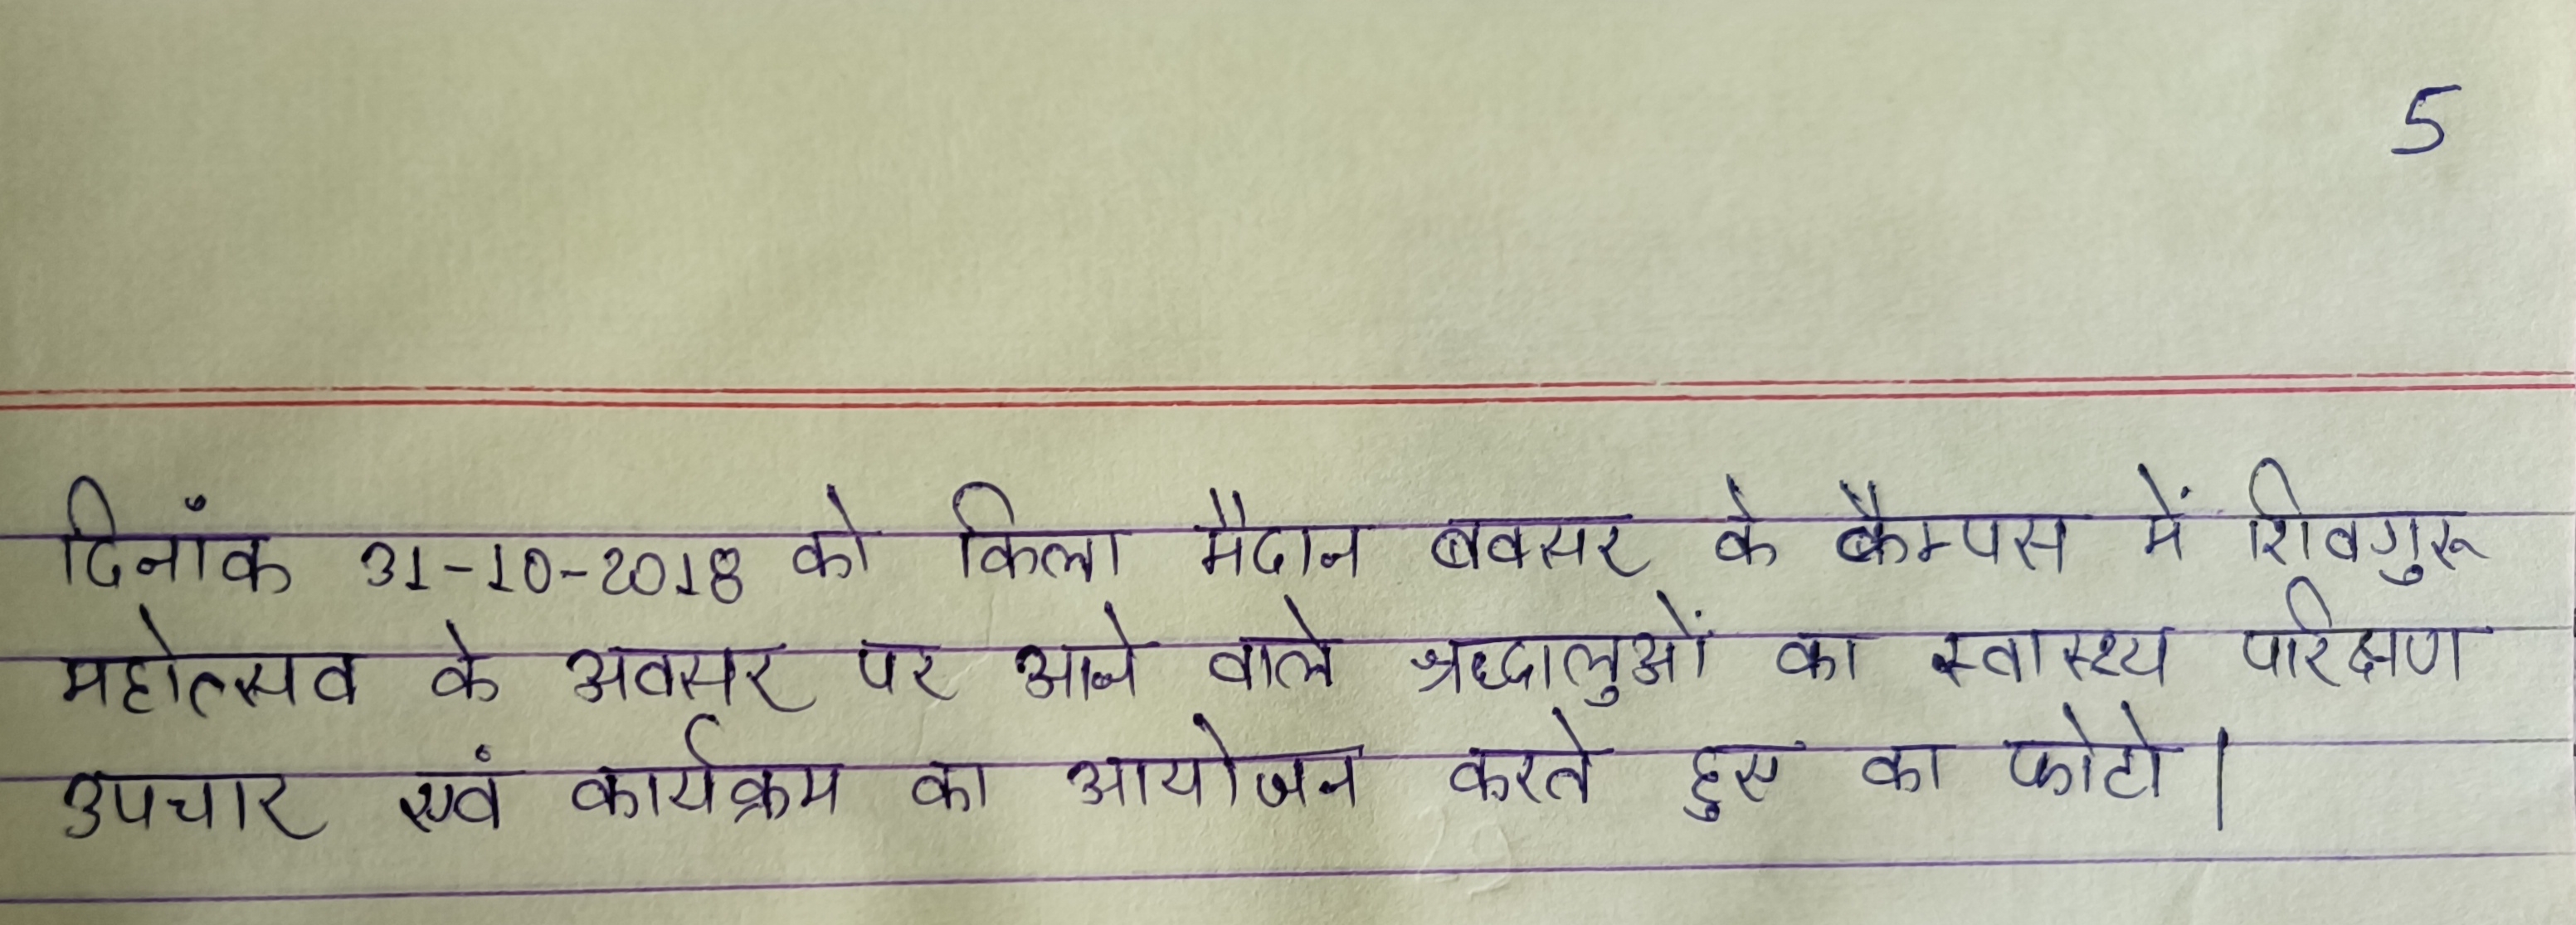 5
दिनाँक 31-10-2018 को किला मैदान बक्सर के कैम्पस में शिवगुरू
महोत्सव के अवसर पर आने वाले श्रद्धालुओं का स्वास्थ्य परिक्षण
उपचार एवं कार्यक्रम का आयोजन करते हुए का फोटो |